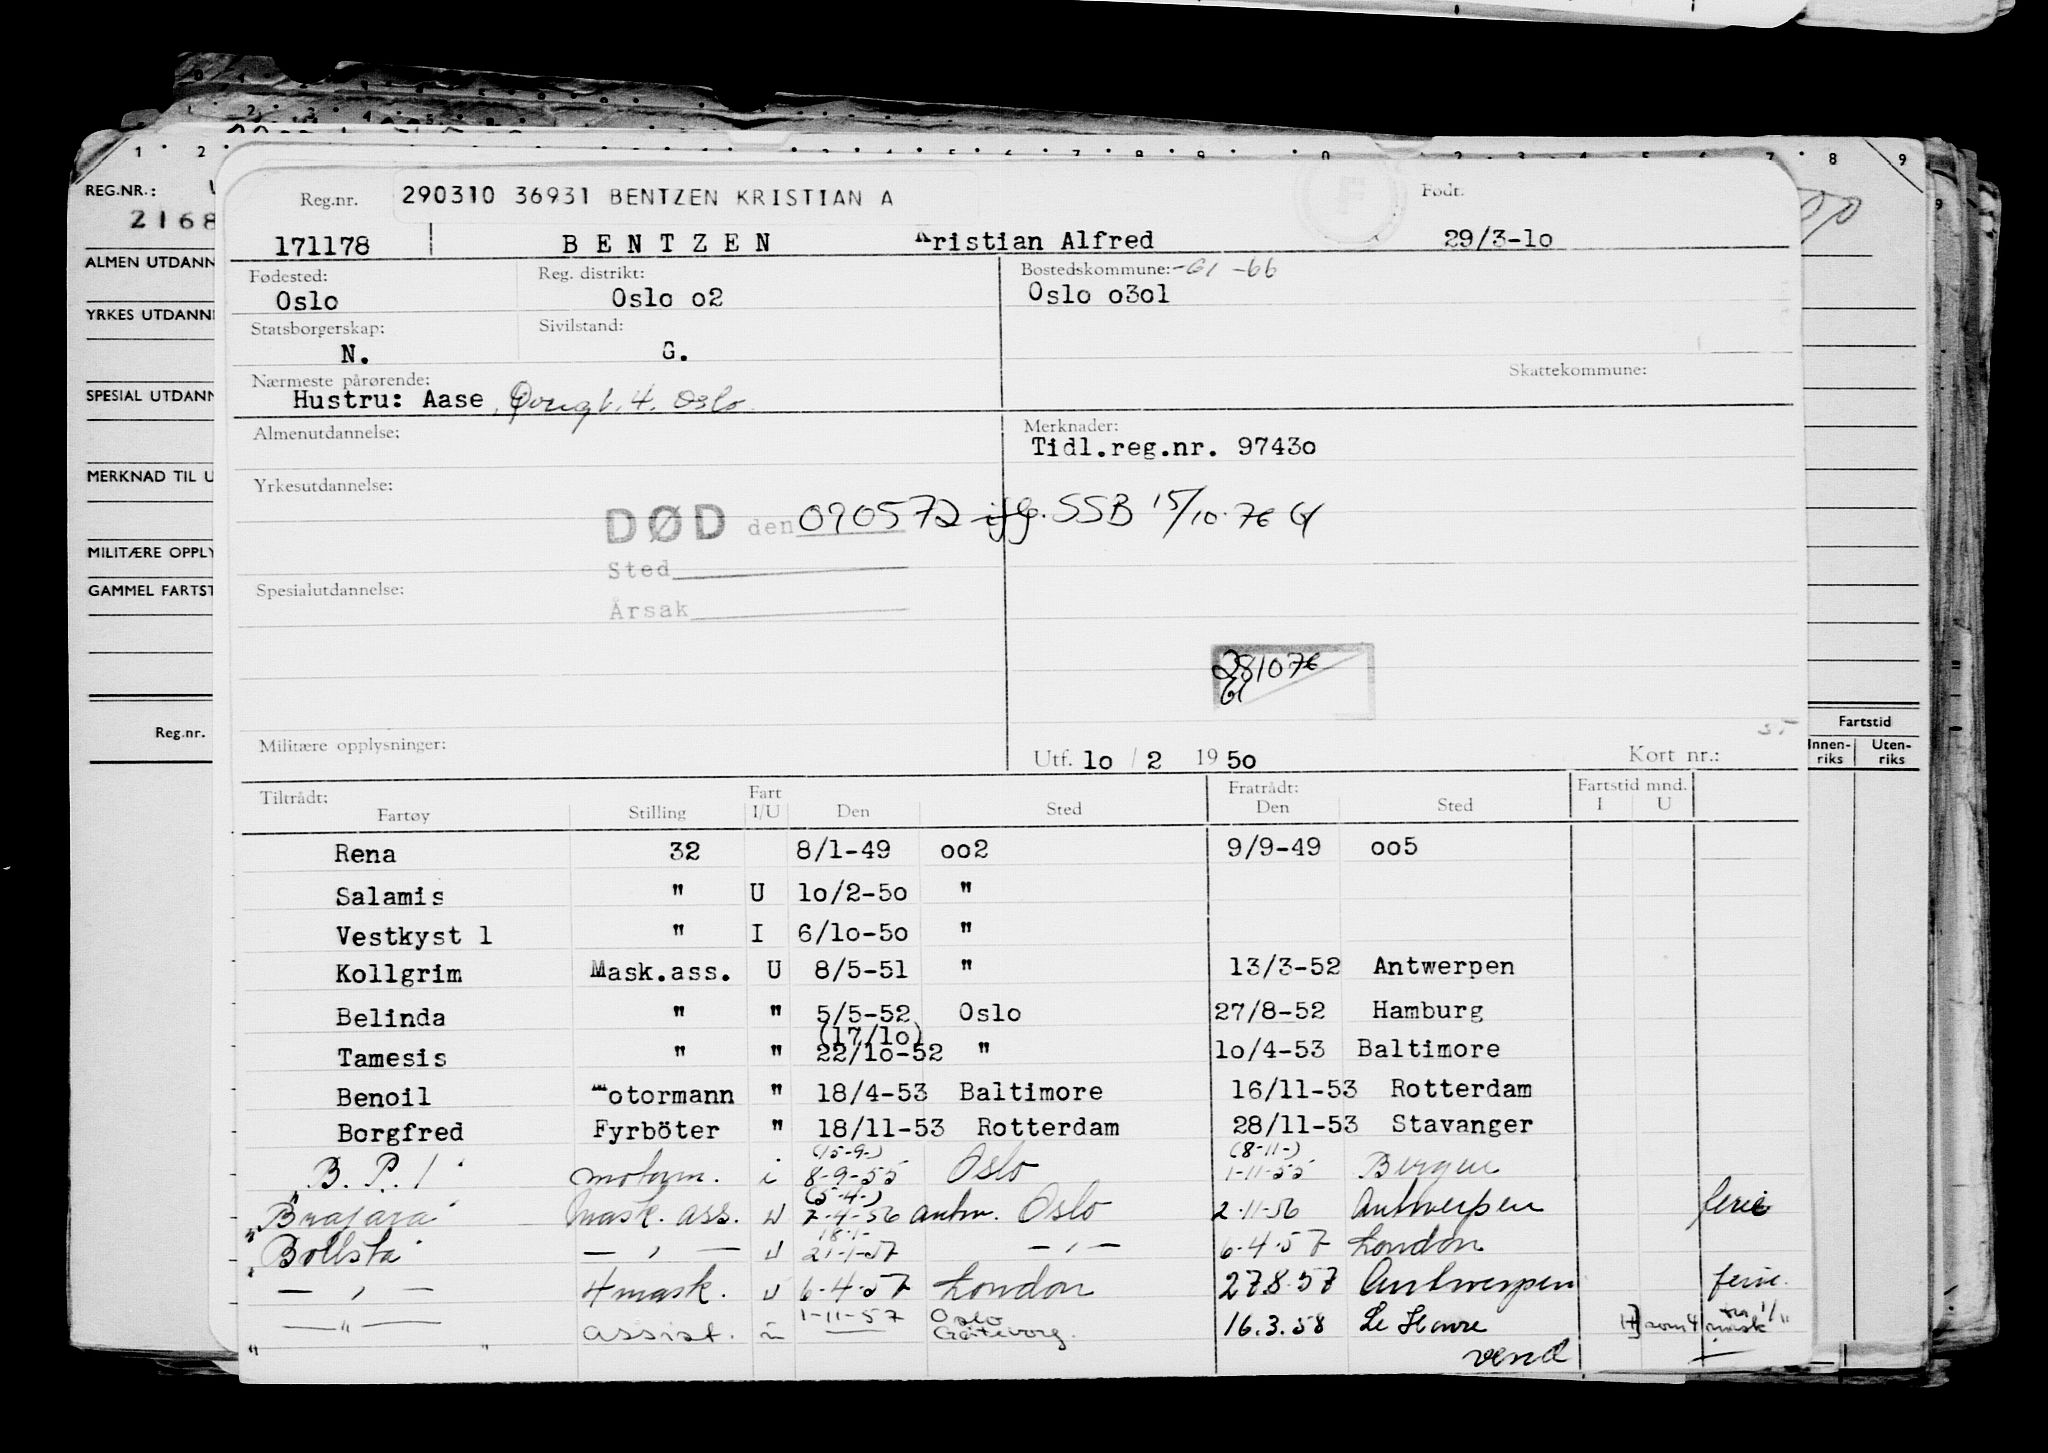 REG.NR.:
2168
ALMEN UTDANN
YRKES UTDANN
SPESIAL UTDANN
MERKNAD TIL U
MILITÆRE OPPLY
GAMMEL FARTST
Reg.nr.
Reg.nr. 290310 36931 BENTZEN KRISTIAN A Født:
171178 BENTZEN Kristian Alfred 29/3-lo
Fødested: Reg. distrikt: Bostedskommune: -61 -66
Oslo Oslo o2 Oslo o3ol
Statsborgerskap: Sivilstand:
N. G.
Skattekommune:
Nærmeste pårørende:
Hustru: Aase, 4. Oslo.
Almenutdannelse: Merknader:
Tidl.reg.nr. 9743o
Yrkesutdannelse:
DØD den 090572 iflg. SSB 15/10-76
Sted
Spesialutdannelse:
Årsak
281076
Militære opplysninger: Utf. lo / 2 19 5o Kort nr.:
Fartstid
Innen-riks Uten-riks
Tiltrådt: Fart Fratrådt: Fartstid mnd.
Fartøy Stilling I/U Den Sted Den Sted I U
Rena 32 8/1-49 oo2 9/9-49 oo5
Salamis " U lo/2-5o "
Vestkyst l " I 6/lo-5o "
Kollgrim Mask.ass. U 8/5-51 " 13/3-52 Antwerpen
Belinda " " 5/5-52 Oslo 27/8-52 Hamburg
(17/lo)
Tamesis " " 22/lo-52 " lo/4-53 Baltimore
Benoil Motormann " 18/4-53 Baltimore 16/11-53 Rotterdam
Borgfred Fyrböter " 18/11-53 Rotterdam 28/11-53 Stavanger
(15-9-) (8-11-)
B. P. 1 motorm. i 8-9-55 Oslo 1-11-55 Bergen
(5-4-)
Brajara Mask. ass. u 7-4-56 antw. Oslo 2-11-56 Antwerpen ferie
18-1-
Bollsta — " — u 21-1-57 — " — 6-4-57 London
— " — 4 mask. u 6-4-57 London 27.8.57 Antwerpen ferie.
— " — assist. u 1-11-57 Oslo Göteborg. 16.3.58 Le Havre som 4 mask
vend